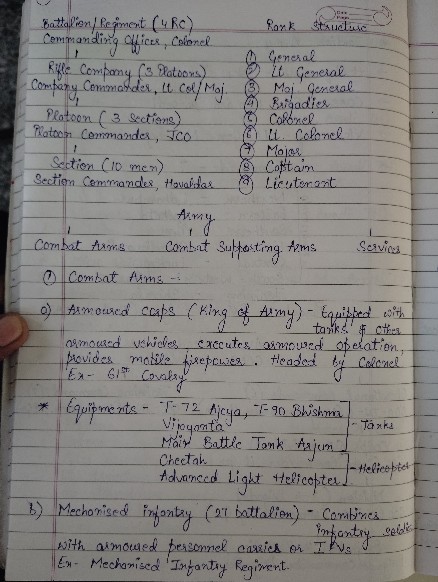 Battalion/Regiment (4 RC)
Commanding Officer, Colonel
Rifle Company (3 Platoons)
Company Commander, Lt Col/Maj.
Platoon (3 Sections)
Platoon Commander, JCO
Section (10 men)
Section Commander, Havaldar
Rank Structure
① General
② Lt General
③ Maj. General
④ Brigadier
⑤ Colonel
⑥ Lt. Colonel
⑦ Major
⑧ Captain
⑨ Lieutenant
Army
Combat Arms Combat Supporting Arms Services
① Combat Arms -:
a) Armoured corps (King of Army) - Equipped with
tanks & other
armoured vehicles, executes armoured operation,
provides mobile firepower. Headed by Colonel
Ex- 61st Cavalry
* Equipments - T-72 Ajeya, T-90 Bhishma
Vijayanta
Main Battle Tank Arjun
- Tanks
Cheetah
Advanced Light Helicopter
- Helicopter
b) Mechanised infantry (27 battalion) - Combines
infantry
with armoured personnel carrier or IFVs
Ex- Mechanised Infantry Regiment.